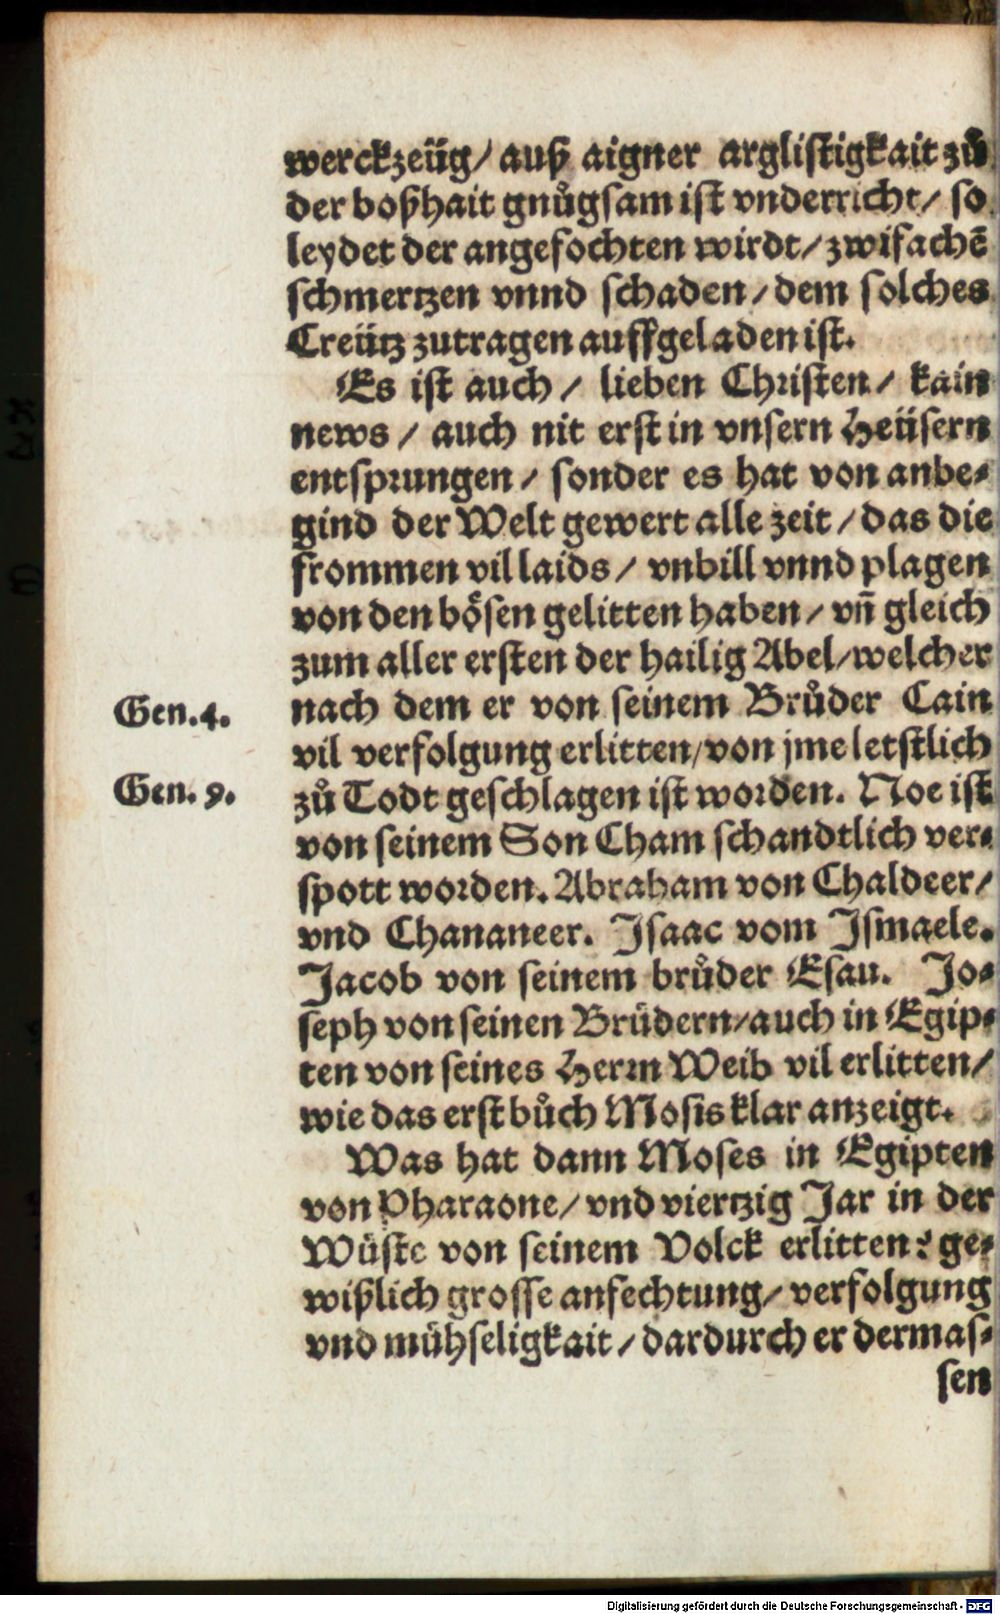 werckzeüg/ auß aigner arglistigkait zů
der boßhait gnůgsam ist vnderricht/ so
leydet der angefochten wirdt/ zwifachē
schmertzen vnnd schaden/ dem solches
Creütz zutragen auffgeladen ist.
Es ist auch/ lieben Christen/ kain
news/ auch nit erst in vnsern Heüsern
entsprungen/ sonder es hat von anbe-
gind der Welt gewert alle zeit/ das die
frommen vil laids/ vnbill vnnd plagen
von den bösen gelitten haben/ vn̄ gleich
zum aller ersten der hailig Abel/ welcher
Gen.4. nach dem er von seinem Brůder Cain
vil verfolgung erlitten/ von jme letstlich
Gen. 9. zů Todt geschlagen ist worden. Noe ist
von seinem Son Cham schandtlich ver-
spott worden. Abraham von Chaldeer/
vnd Chananeer. Isaac vom Ismaele.
Jacob von seinem brůder Esau. Jo-
seph von seinen Brüdern/ auch in Egip-
ten von seines Herrn Weib vil erlitten/
wie das erst bůch Mosis klar anzeigt.
Was hat dann Moses in Egipten
von Pharaone/ vnd viertzig Jar in der
Wüste von seinem Volck erlitten? ge-
wißlich grosse anfechtung/ verfolgung
vnd mühseligkait/ dardurch er dermas-
sen
Digitalisierung gefördert durch die Deutsche Forschungsgemeinschaft - DFG